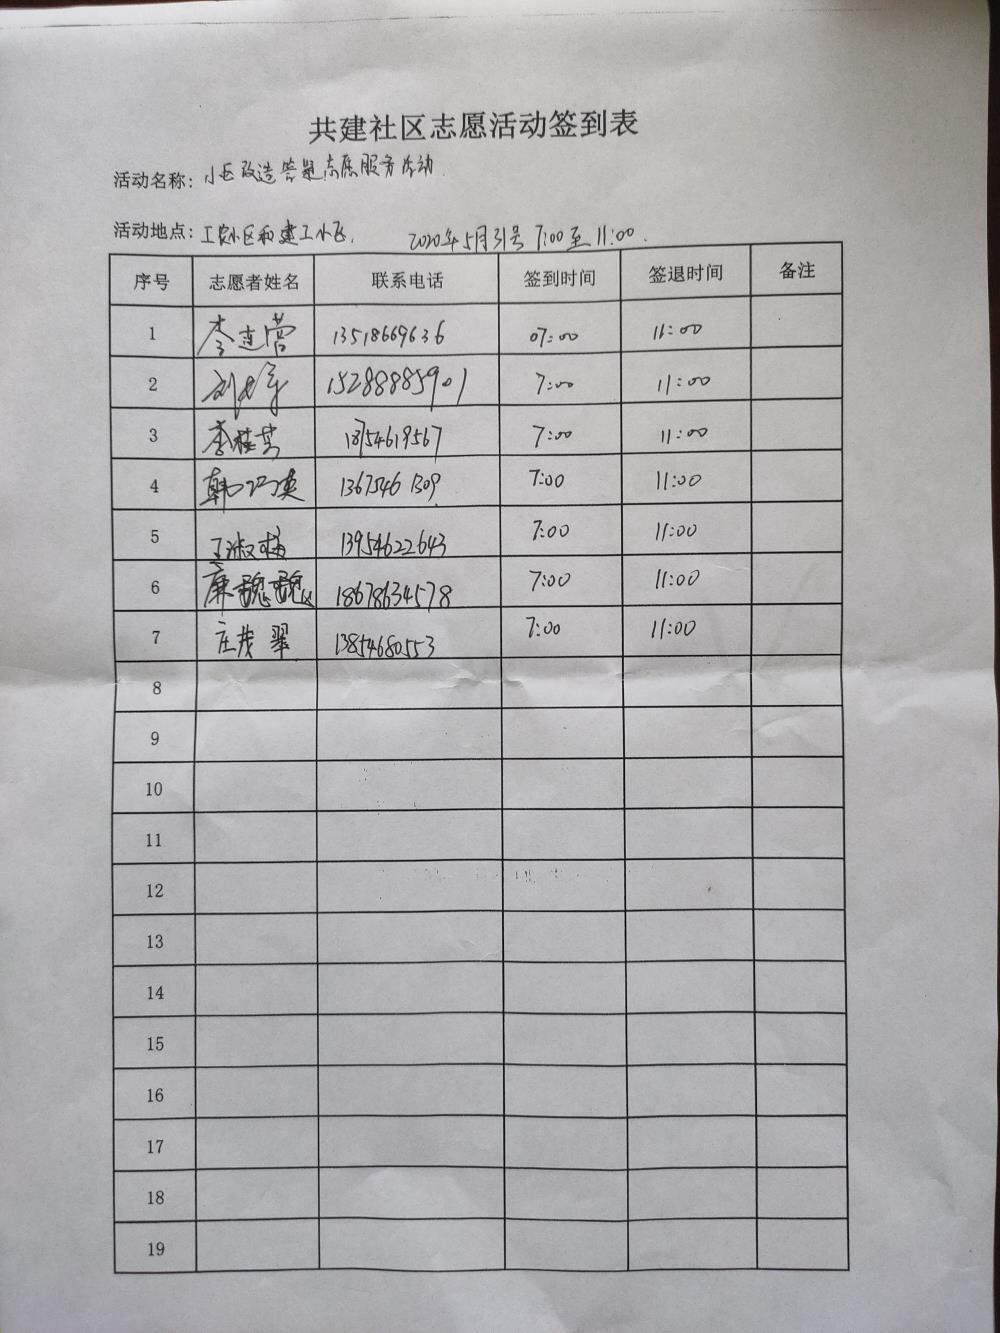 共建社区志愿活动签到表
活动名称：小区改造答题志愿服务活动
活动地点：工农小区和建工小区， 2020年5月31号 7:00至11:00.
序号 志愿者姓名 联系电话 签到时间 签退时间 备注
1 李连营 13518669636 07:00 11:00
2 15288885901 7:00 11:00
3 李桂芳 18754619567 7:00 11:00
4 韩巧英 13675461309 7:00 11:00
5 王淑梅 13954622643 7:00 11:00
6 18678634578 7:00 11:00
7 庄茂翠 13854680553 7:00 11:00
8
9
10
11
12
13
14
15
16
17
18
19